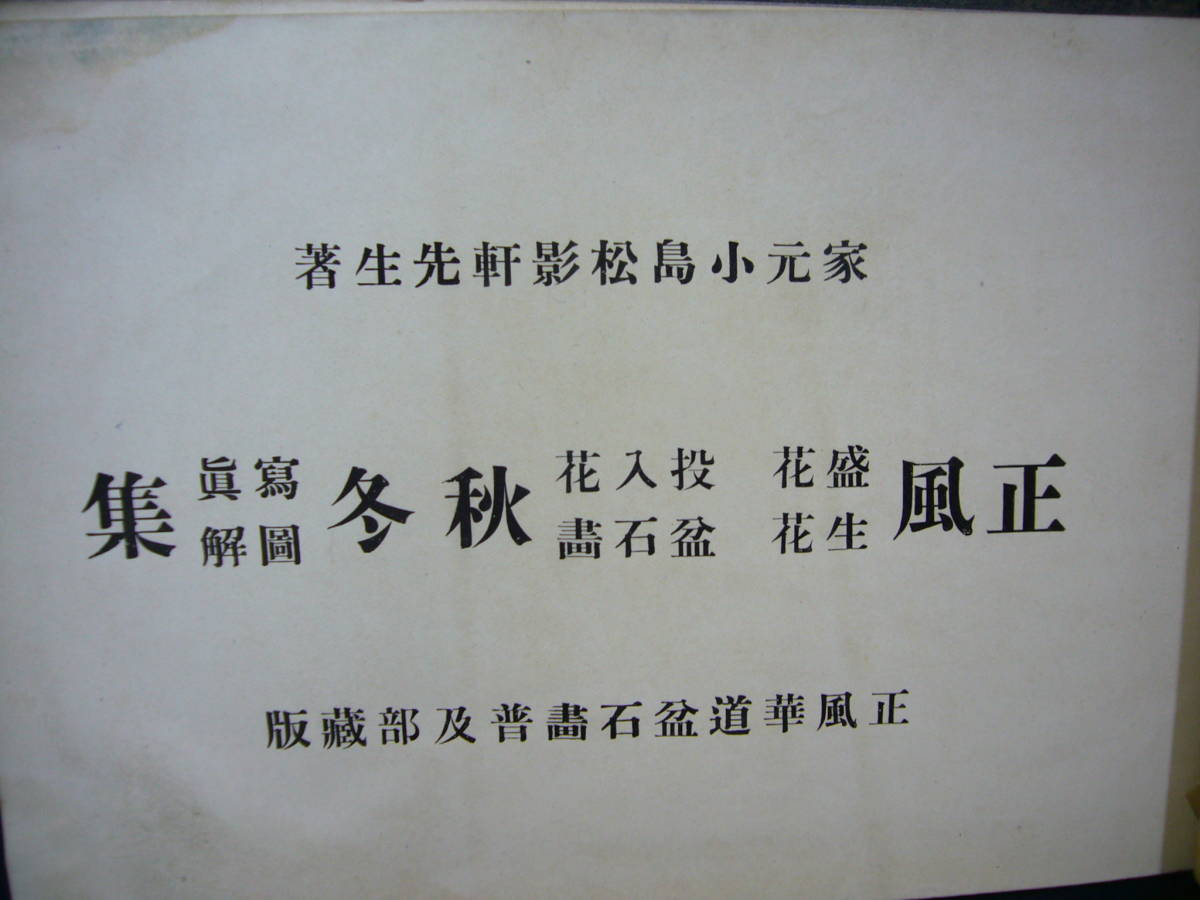 家元小島松影軒先生著
正風 盛花 生花 投入花 盆石畫 秋冬 寫眞 圖解 集
正風華道盆石畫普及部藏版